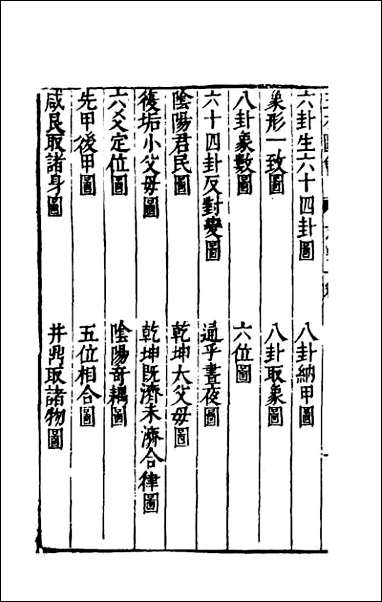 六卦生六十四卦圖
八卦納甲圖
象形一致圖
八卦取象圖
八卦象數圖
六位圖
六十四卦反對變圖
通乎晝夜圖
陰陽君民圖
乾坤大父母圖
復垢小父母圖
乾坤既濟未濟合律圖
六爻定位圖
陰陽奇耦圖
先甲後甲圖
五位相合圖
咸艮取諸身圖
井鼎取諸物圖